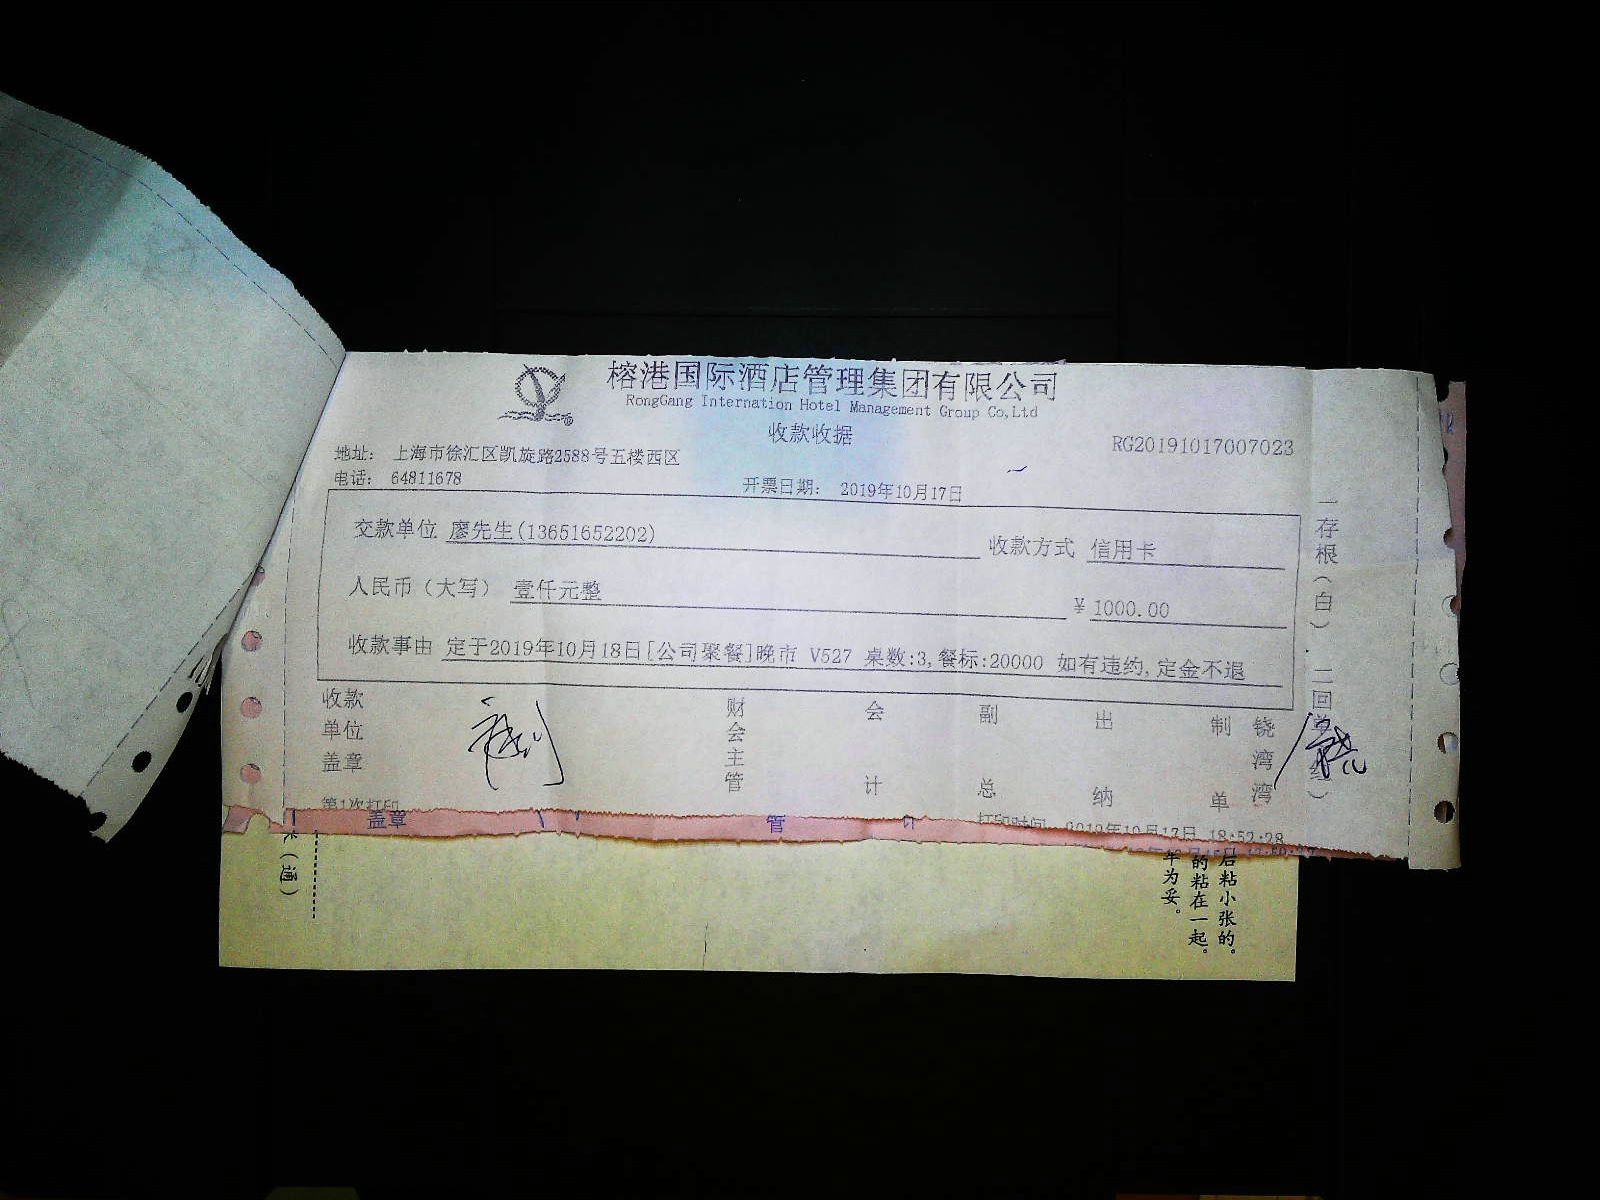 榕港国际酒店管理集团有限公司
RongGang Internation Hotel Management Group Co,Ltd
收款收据
RG20191017007023
地址： 上海市徐汇区凯旋路2588号五楼西区
电话： 64811678
开票日期： 2019年10月17日
交款单位 廖先生(13651652202) 收款方式 信用卡
人民币（大写） 壹仟元整 ￥ 1000.00
收款事由 定于2019年10月18日[公司聚餐]晚市 V527 桌数:3,餐标:20000 如有违约,定金不退
收款单位盖章 财会主管 会计 副总 出纳 制单 饶湾湾
一存根（白） 二回单（红）
第1次打印
打印时间 2019年10月17日 18:52:28
盖章 管 计
（通）
后粘小张的。
的粘在一起。
年为妥。